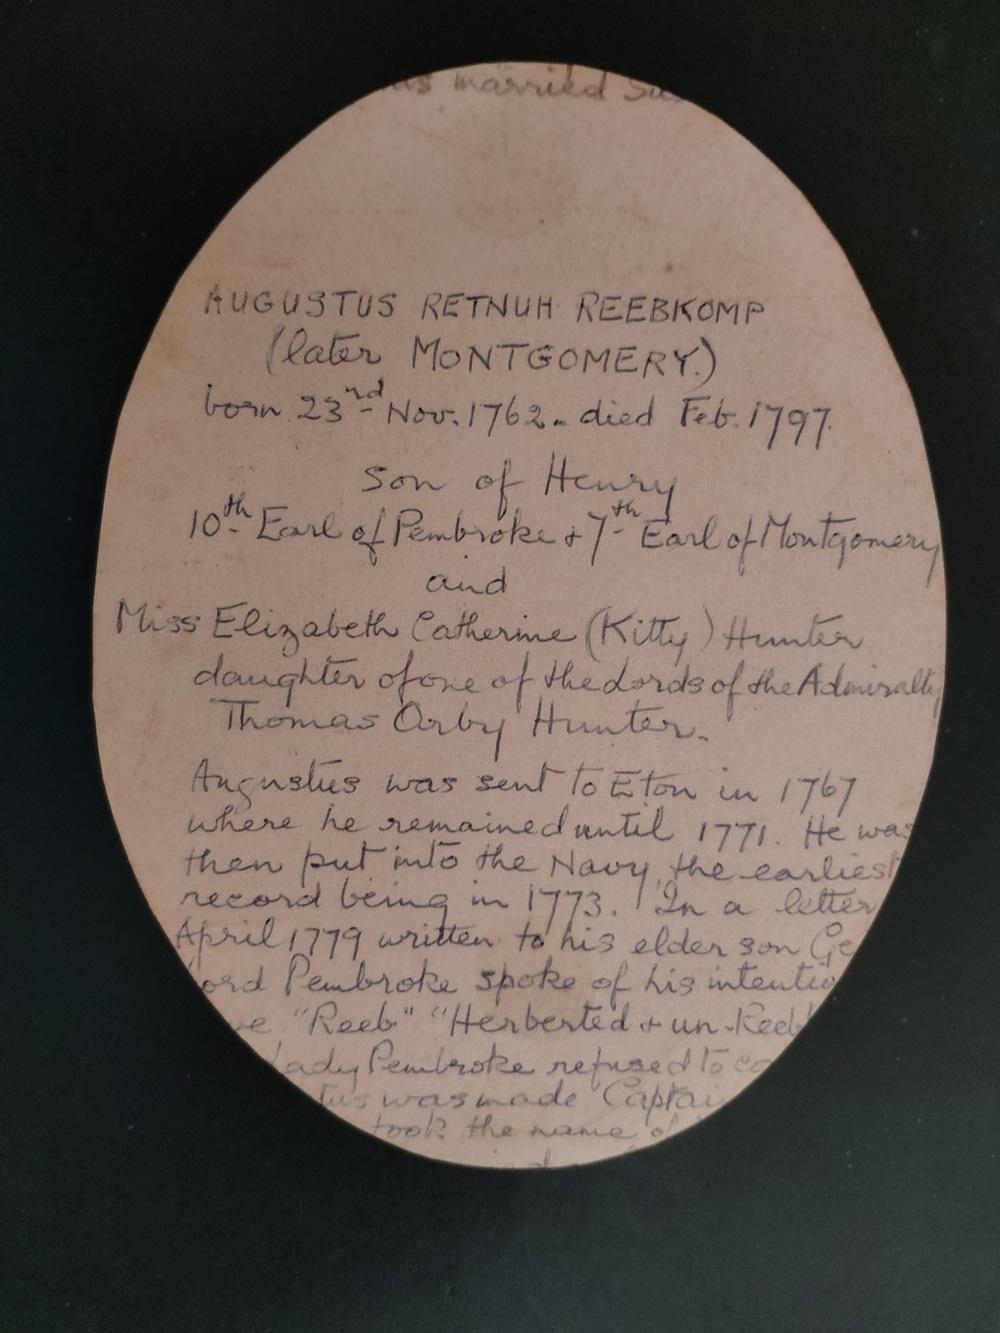 as married
AUGUSTUS RETNUH REEBKOMP
(later MONTGOMERY.)
born 23nd Nov. 1762. died Feb. 1797.
son of Henry
10th Earl of Pembroke + 7th Earl of Montgomery
and
Miss Elizabeth Catherine (Kitty) Hunter
daughter of one of the Lords of the Admiralty
Thomas Orby Hunter.
Augustus was sent to Eton in 1767
where he remained until 1771. He was
then put into the Navy, the earliest
record being in 1773. In a letter
April 1779 written to his elder son Ge
ord Pembroke spoke of his intentio
ve "Reeb" "Herberted + un-Reeb
ady Pembroke refused to co
tus was made Captai
took the name of